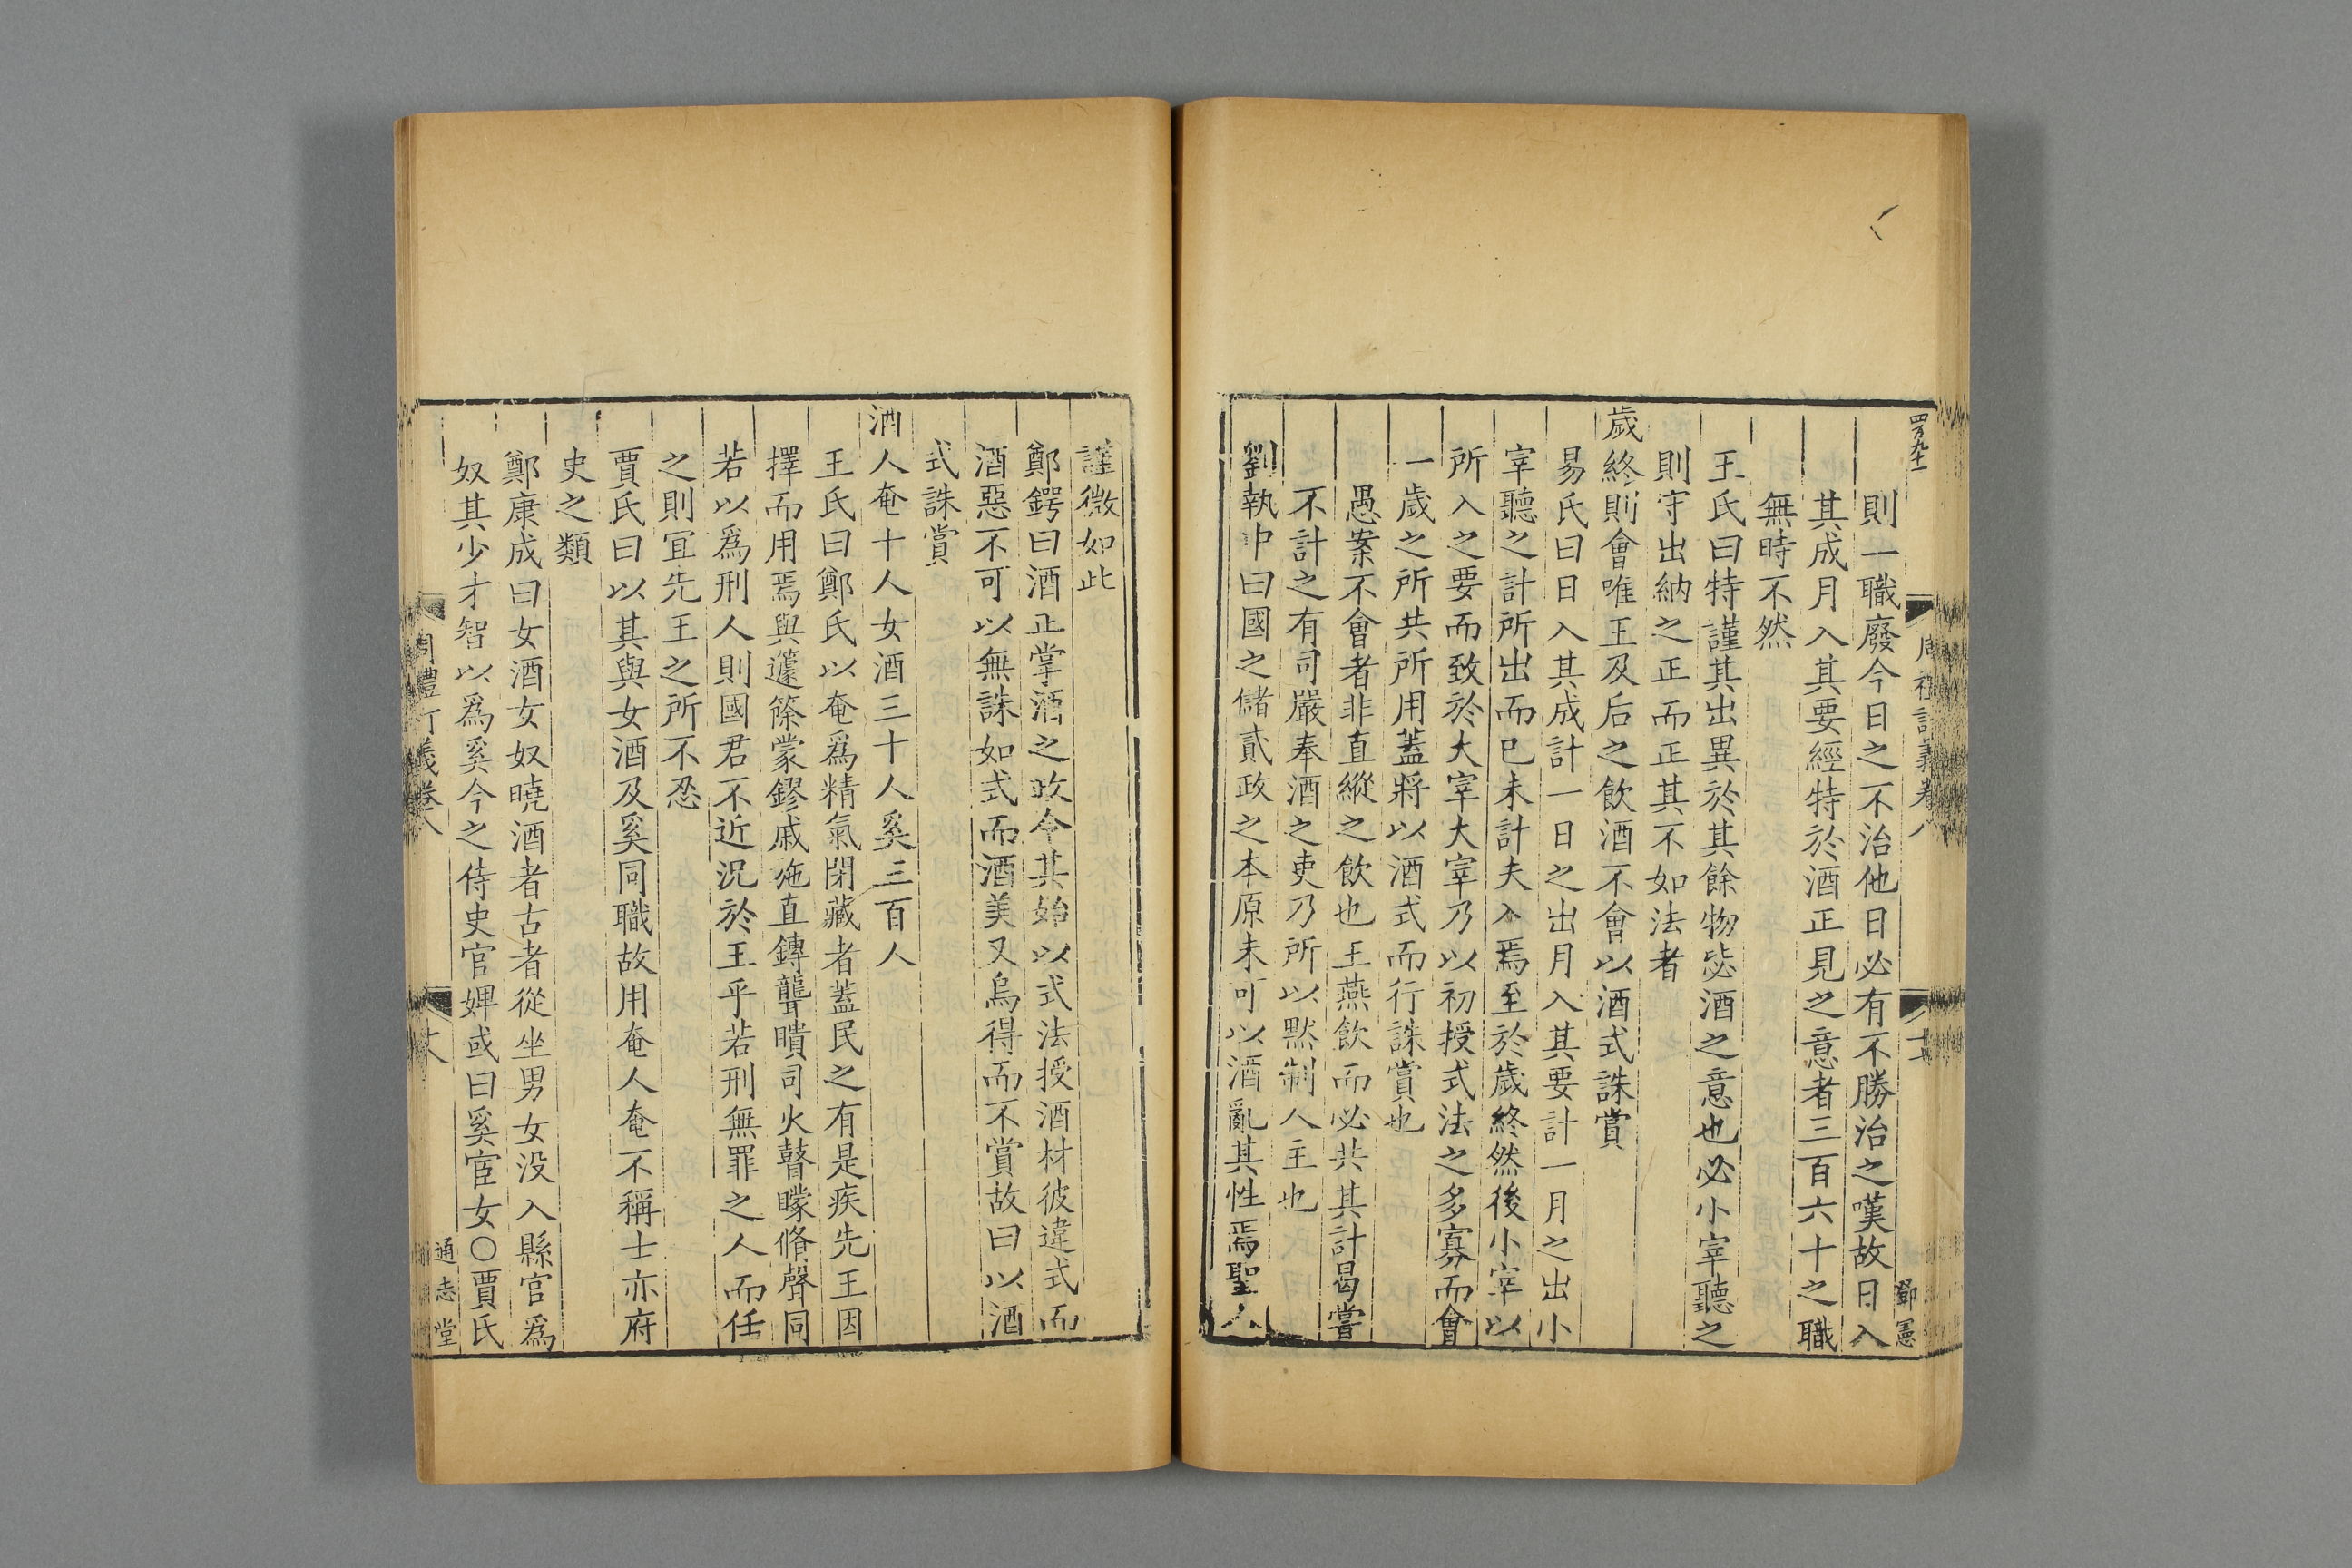 則一職廢今日之不治他日必有不勝治之嘆故日入
其成月入其要經特於酒正見之意者三百六十之職
無時不然
王氏曰特謹其出異於其餘物毖酒之意也必小宰聽之
則守出納之正而正其不如法者
歲終則會唯王及后之飲酒不會以酒式誅賞
易氏曰日入其成計一日之出月入其要計一月之出小
宰聽之計所出而已未計夫入焉至於歲終然後小宰以
所入之要而致於大宰大宰乃以初授式法之多寡而會
一歲之所共所用蓋將以酒式而行誅賞也
愚案不會者非直縱之飲也王燕飲而必共其計曷嘗
不計之有司嚴奉酒之吏乃所以黙制人主也
劉執中曰國之儲貳政之本原未可以酒亂其性焉聖人
謹微如此
鄭鍔曰酒正掌酒之政令其始以式法授酒材彼違式而
酒惡不可以無誅如式而酒美又烏得而不賞故曰以酒
式誅賞
酒人奄十人女酒三十人奚三百人
王氏曰鄭氏以奄爲精氣閉藏者蓋民之有是疾先王因
擇而用焉與籧篨蒙鏐戚施直鏄聾聵司火瞽矇脩聲同
若以爲刑人則國君不近況於王乎若刑無罪之人而任
之則宜先王之所不忍
賈氏曰以其與女酒及奚同職故用奄人奄不稱士亦府
史之類
鄭康成曰女酒女奴曉酒者古者從坐男女没入縣官爲
奴其少才智以爲奚今之侍史官婢或曰奚宦女○賈氏
通志堂